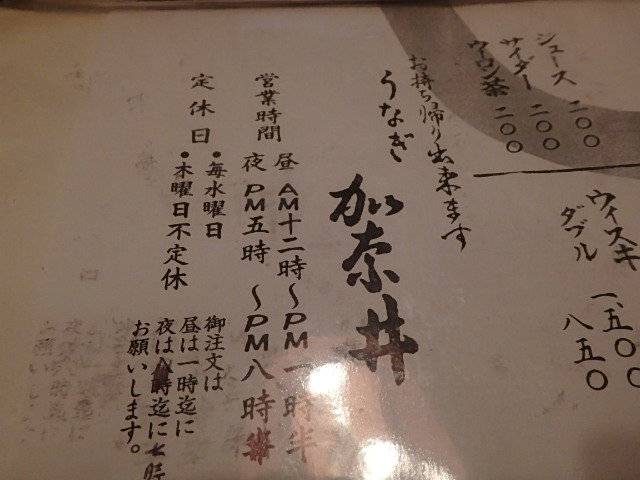 ジュース 二〇〇
サイダー 二〇〇
ウーロン茶 二〇〇
ウィスキ 一、五〇〇
ダブル 八五〇
お持ち帰り出来ます
うなぎ
加奈井
営業時間 昼 AM十二時〜PM一時半
夜 PM五時〜PM八時
定休日 ●毎水曜日
●木曜日不定休
御注文は
昼は一時迄に
夜は 時迄に七時
お願いします。